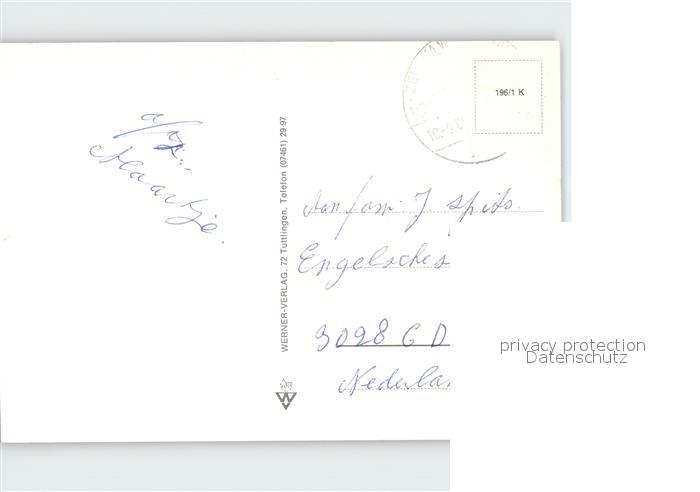 a/z:
Maartje.
WERNER-VERLAG, 72 Tuttlingen, Telefon (07461) 29 97
196/1 K
Aan fam. J. Spits.
Engelsches
3028 GD
Nederla
privacy protection
Datenschutz